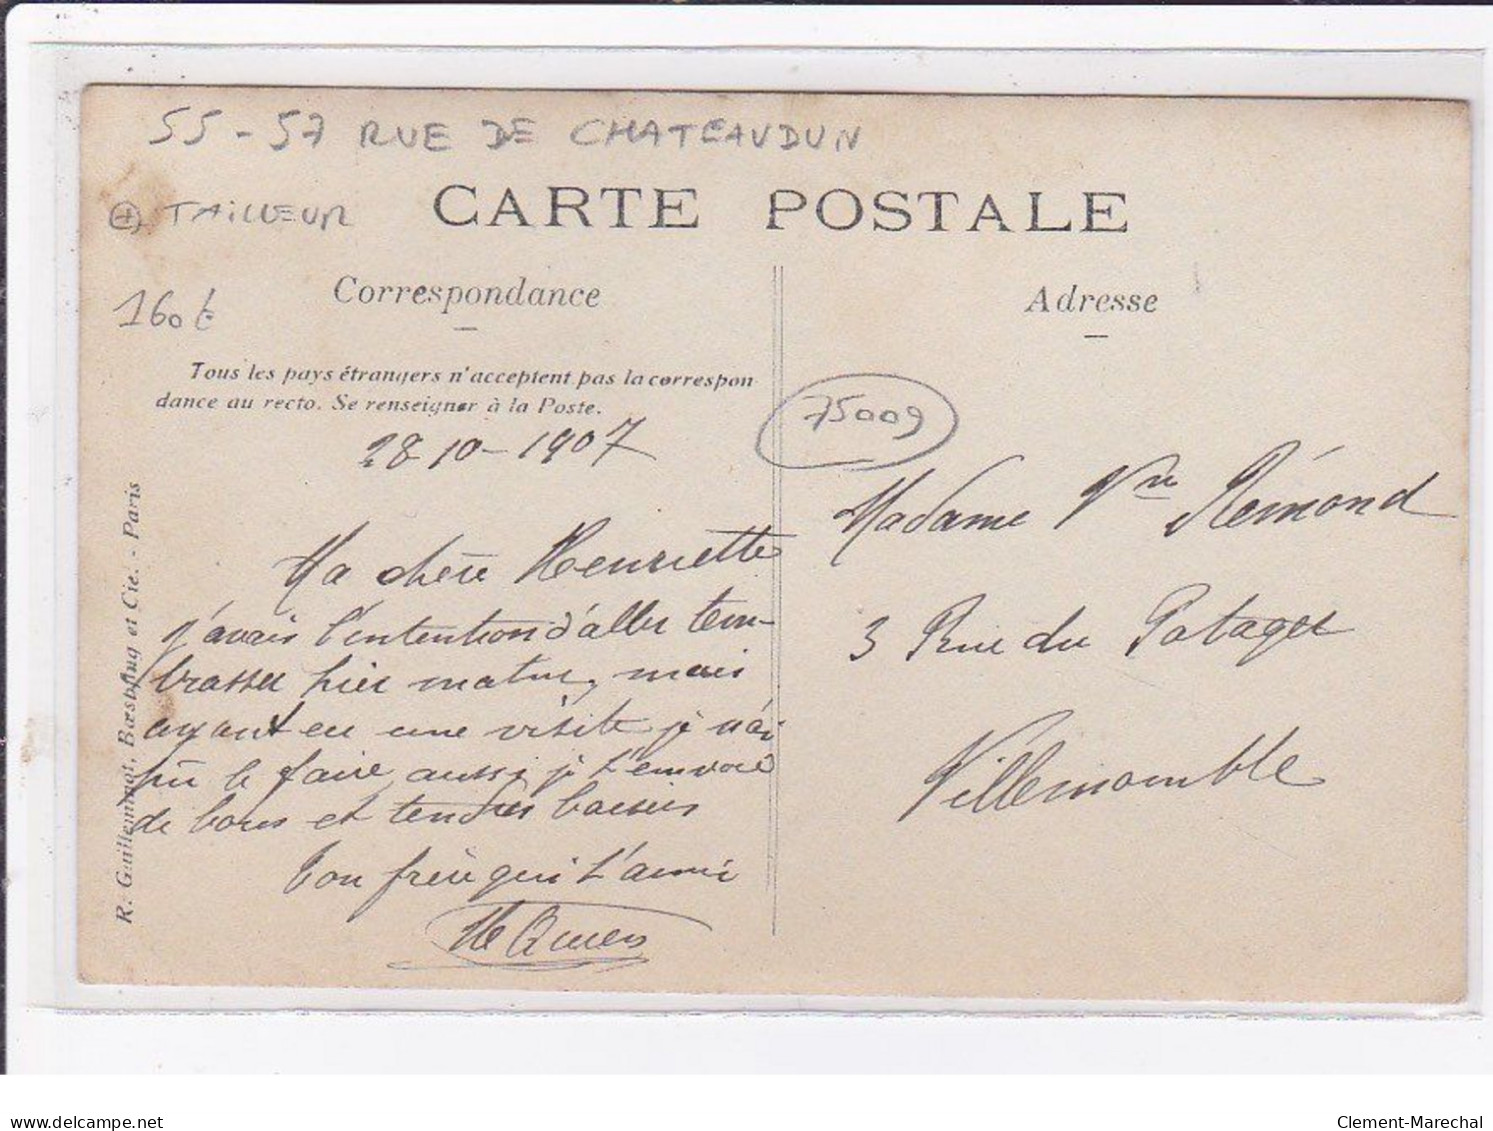 55-57 RUE DE CHATEAUDUN
+ TAILLEUR
CARTE POSTALE
160€
Correspondance
Adresse
Tous les pays étrangers n'acceptent pas la correspon
dance au recto. Se renseigner à la Poste.
75009
28-10-1907
Ma chère Henriette
j'avais l'intention d'aller t'em-
brasser hier matin, mais
ayant eu une visite je n'ai
pu le faire, aussi je t'envoie
de bons et tendres baisers
Ton frère qui t'aime
Madame Vve Rémond
3 Rue du Potager
Villemomble
R. Guilleminot, Bœspflug et Cie. - Paris
delcampe.net
Clement-Marechal